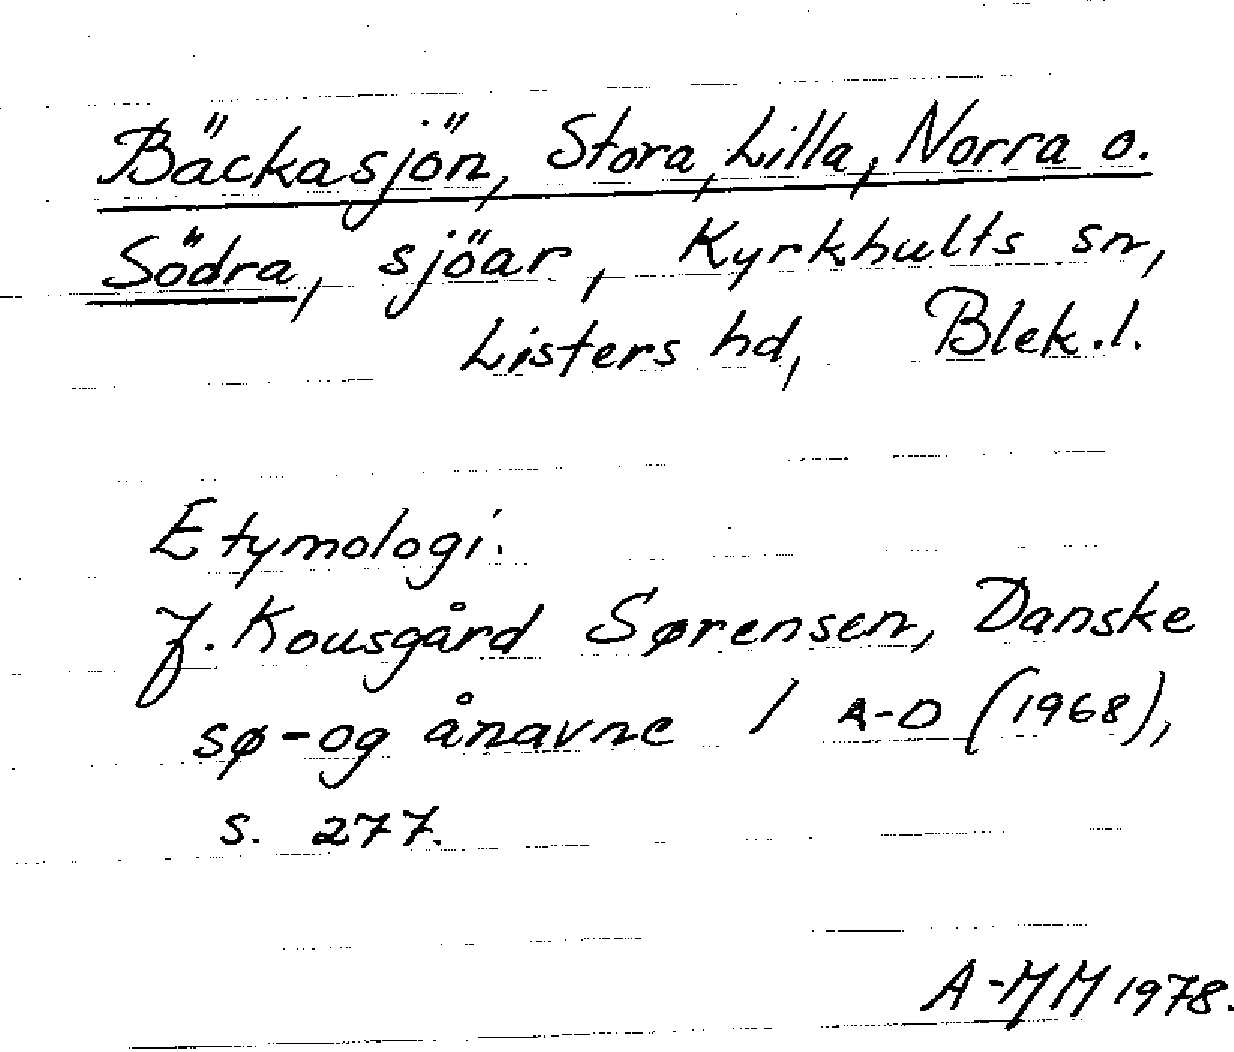 Bäckasjön, Stora, Lilla, Norra o.
Södra, sjöar, Kyrkhults sn,
Listers hd, Blek.l.
Etymologi:
J. Kousgård Sørensen, Danske
sø-og ånavne 1 A-D (1968),
s. 277.
A-MM 1978.